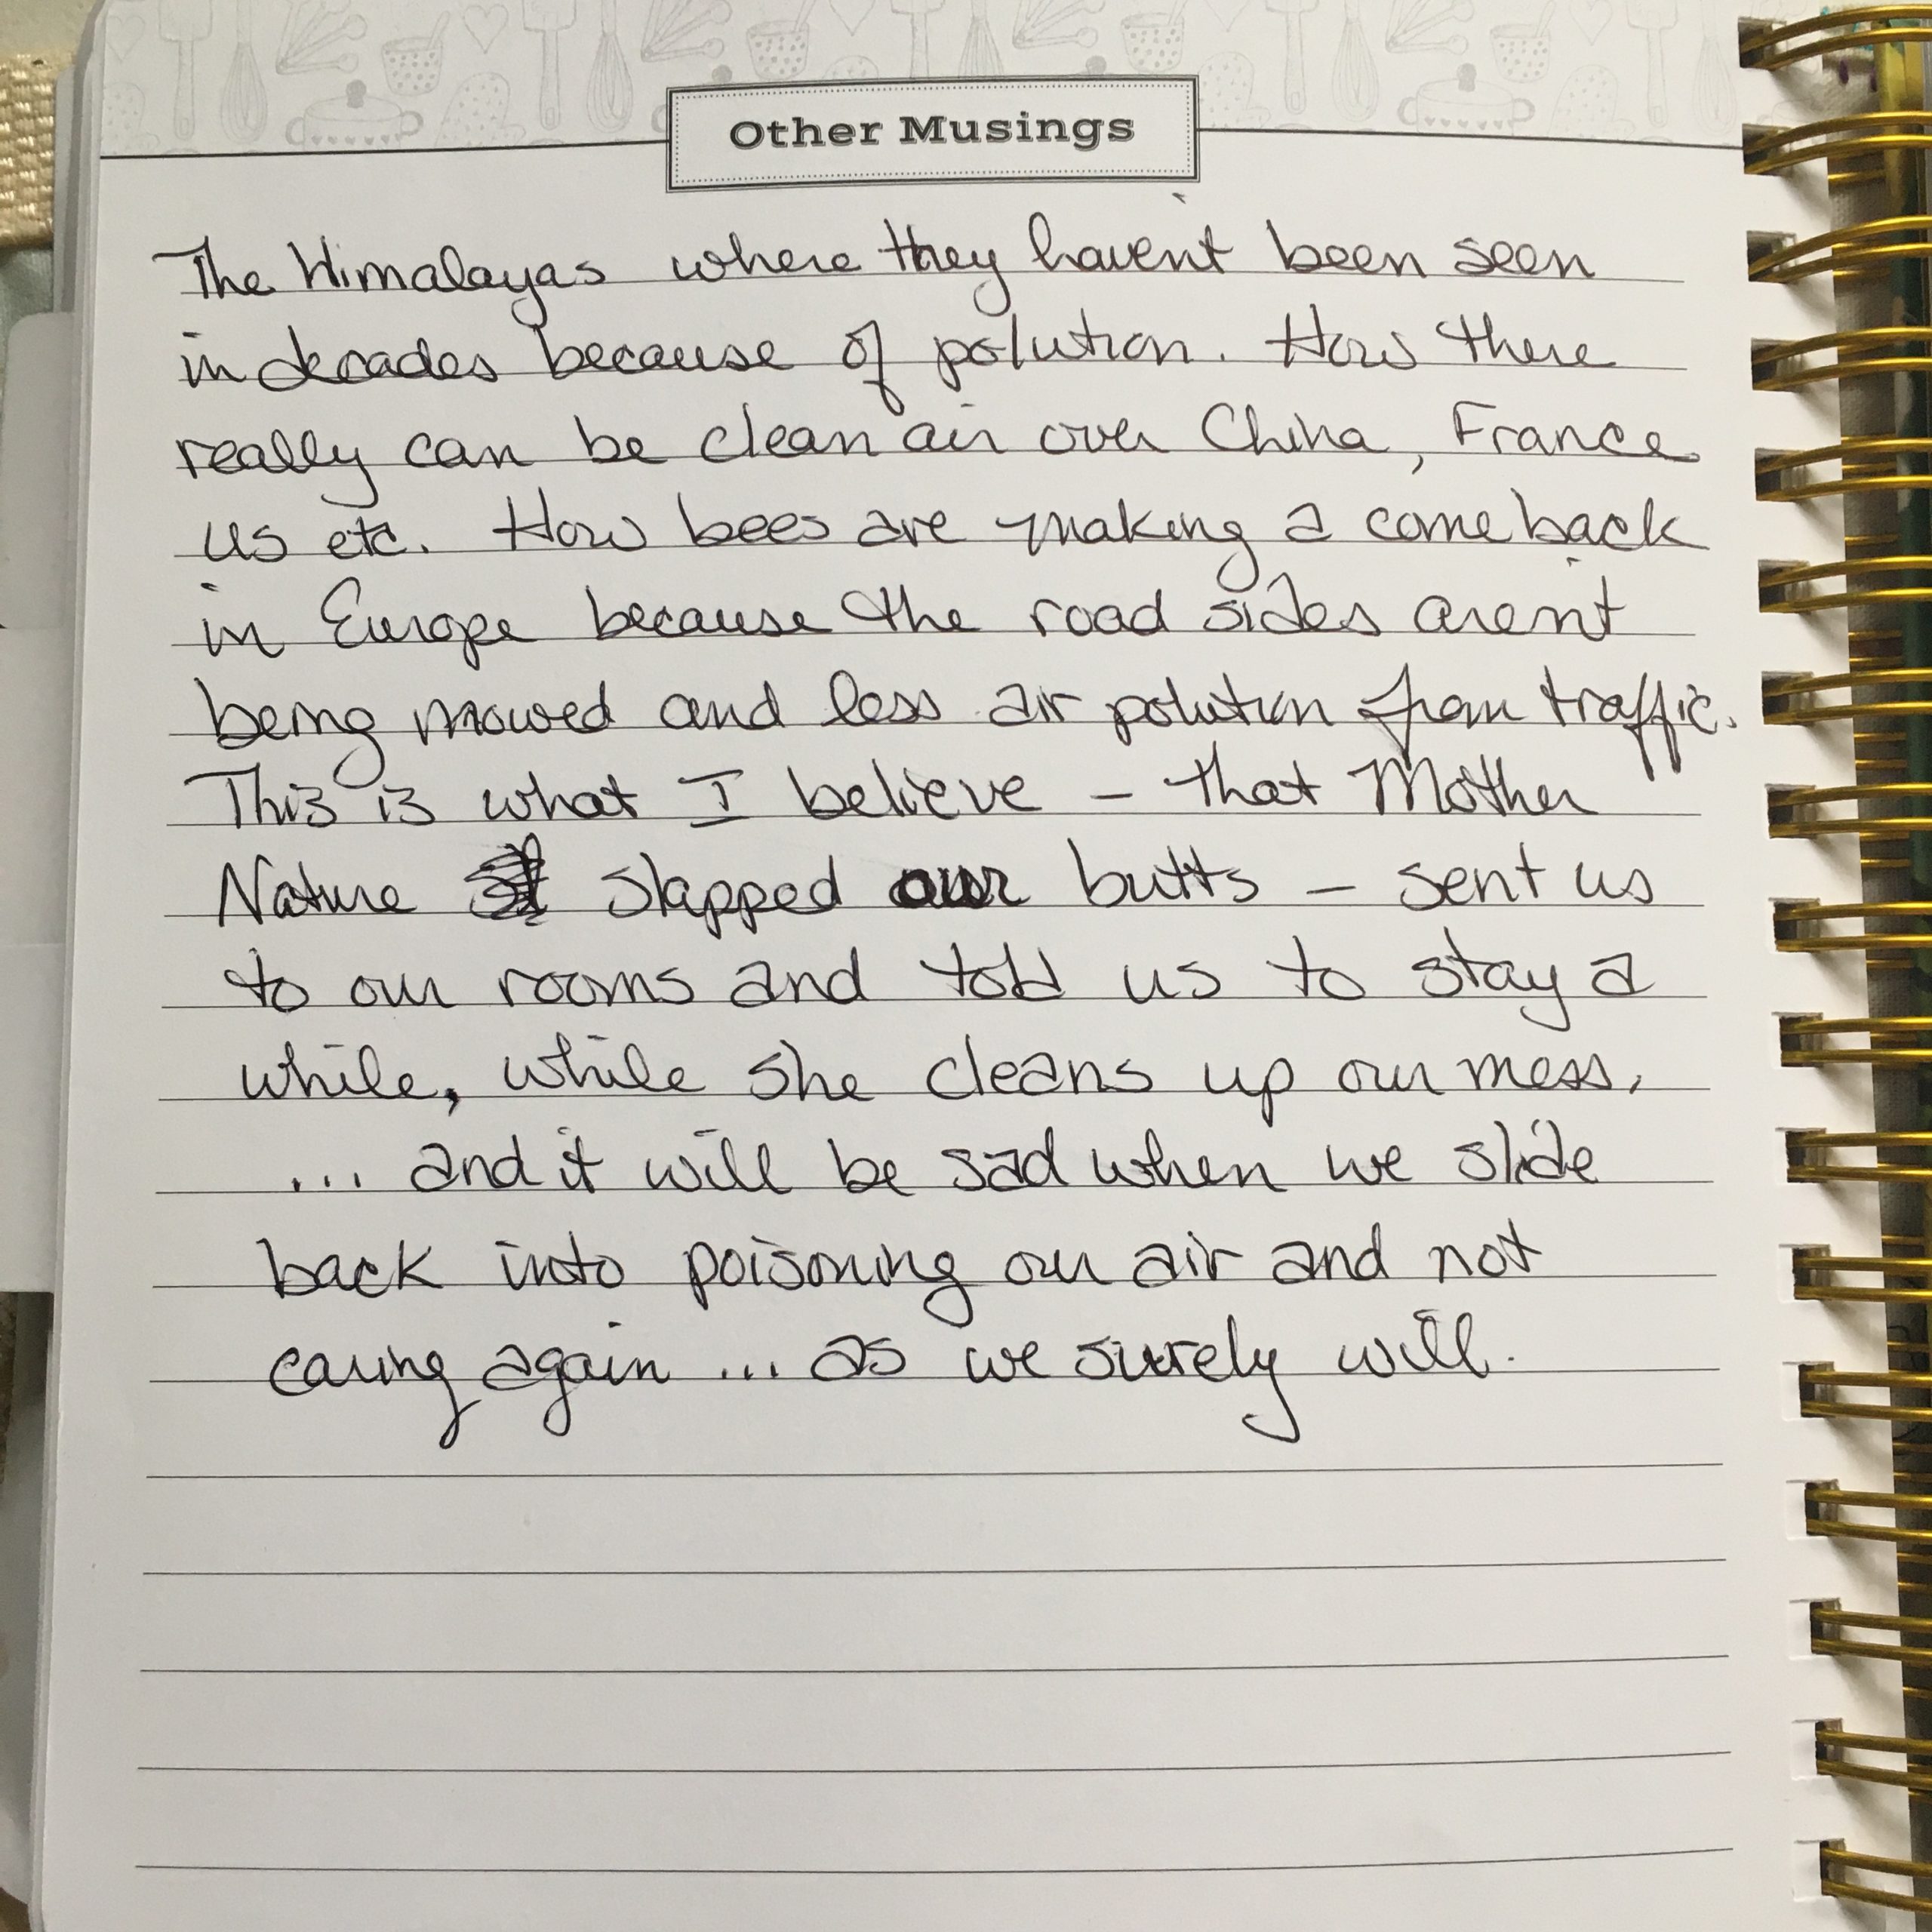 Other Musings
The Himalayas where they haven't been seen
in decades because of polution. How there
really can be clean air over China, France
us etc. How bees are making a come back
in Europe because the road sides aren't
being mowed and less air polution from traffic.
This is what I believe - that Mother
Nature slapped our butts - sent us
to our rooms and told us to stay a
while, while she cleans up our mess.
... and it will be sad when we slide
back into poisoning our air and not
caring again ... as we surely will.